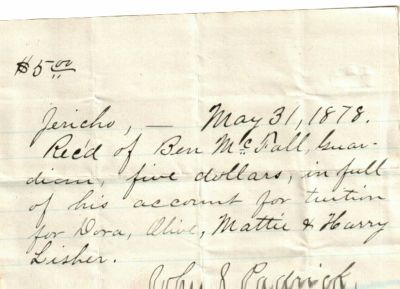 $5.00
Jericho, — May 31, 1878.
Rec'd of Ben McFall, Guar-
dian, five dollars, in full
of his account for tuition
for Dora, Olive, Mattie & Harry
Lisher.
John J. Padrick.